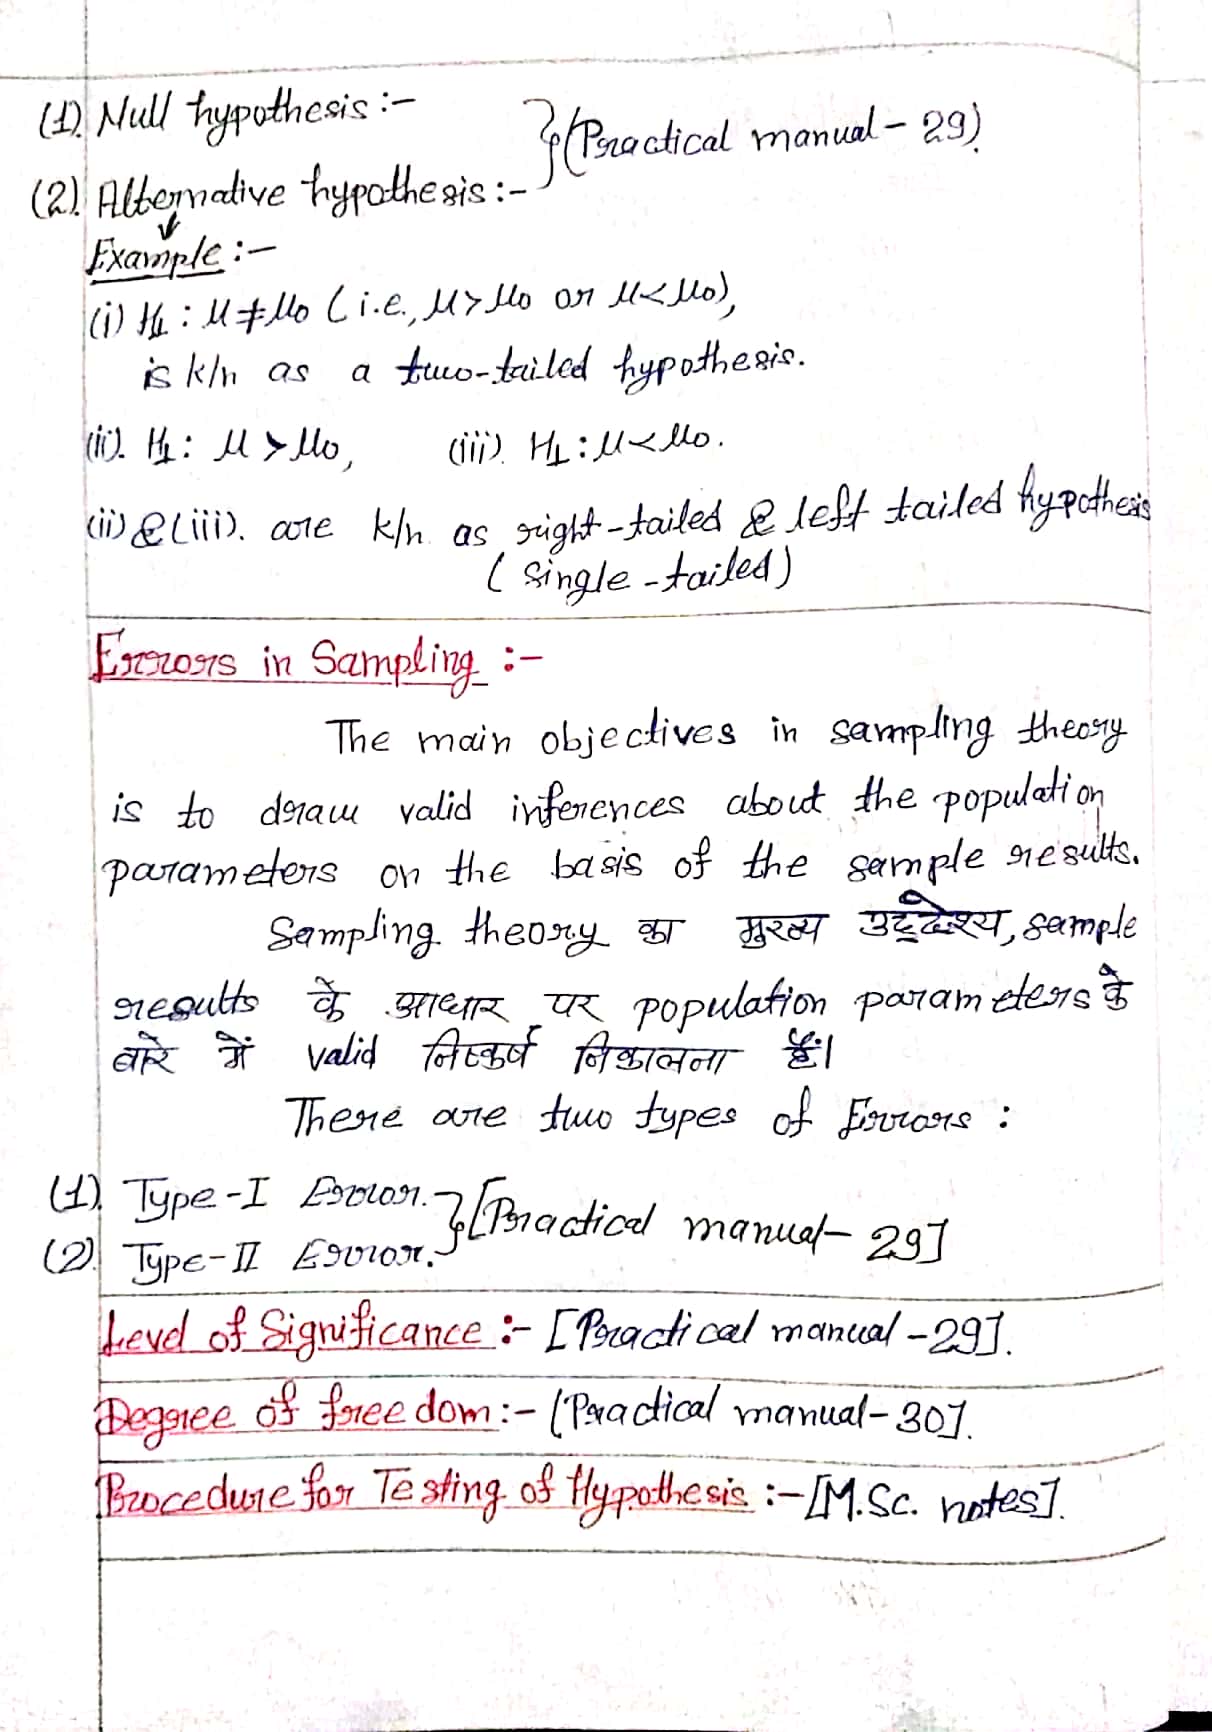 (1). Null hypothesis :-
(2). Alternative hypothesis :- } (Practical manual - 29)
Example :-
(i) H1 : μ ≠ μ0 ( i.e., μ > μ0 or μ < μ0),
is k/n as a two-tailed hypothesis.
(ii). H1 : μ > μ0, (iii). H1 : μ < μ0.
(ii) & (iii). are k/n as right-tailed & left tailed hypothesis
( Single - tailed )
Errors in Sampling :-
The main objectives in sampling theory
is to draw valid inferences about the population
parameters on the basis of the sample results.
Sampling theory का मुख्य उद्देश्य, sample
results के आधार पर population parameters के
बारे में valid निष्कर्ष निकालना हैं।
There are two types of Errors :
(1). Type - I Error.
(2). Type - II Error. } [Practical manual - 29]
Level of Significance :- [Practical manual - 29].
Degree of freedom :- (Practical manual - 30].
Procedure for Testing of Hypothesis :- [M.Sc. notes].